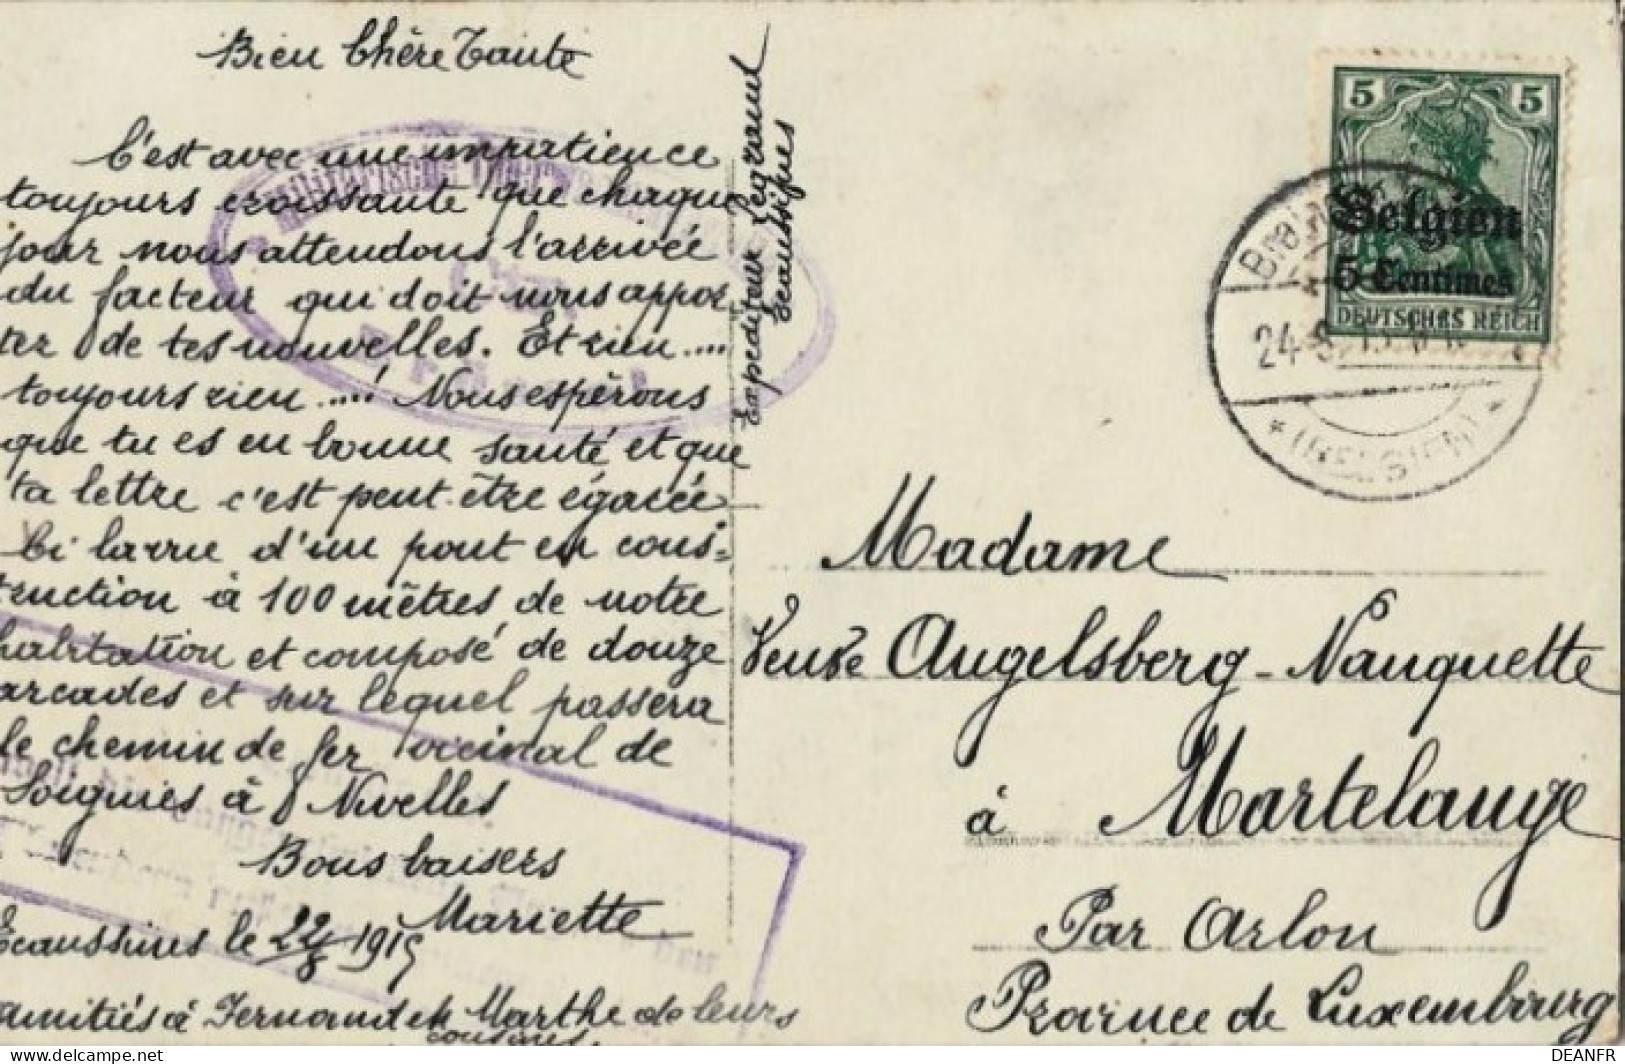 Bien Chère Tante
C'est avec une impatience
toujours croissante que chaque
jour nous attendons l'arrivée
du facteur qui doit nous appor
ter de tes nouvelles. Et rien ....
toujours rien ....! Nous espérons
que tu es en bonne santé et que
ta lettre c'est peut-être égarée
Ci la vue d'un pont en cons=
truction à 100 mètres de notre
habitation et composé de douze
arcades et sur lequel passera
le chemin de fer vicinal de
Soignies à Nivelles
Bons baisers
Mariette
Ecaussines le 22/8 1915
amitiés à Fernand et Marthe de leurs
cousines.
Expéditeur Legrand
Ecaussines
5 5
Belgien
5 Centimes
DEUTSCHES REICH
24
(BELGIEN)
Madame
Veuve Angelsberg-Nauquette
à Martelange
Par Arlon
Province de Luxembourg
DEANFR